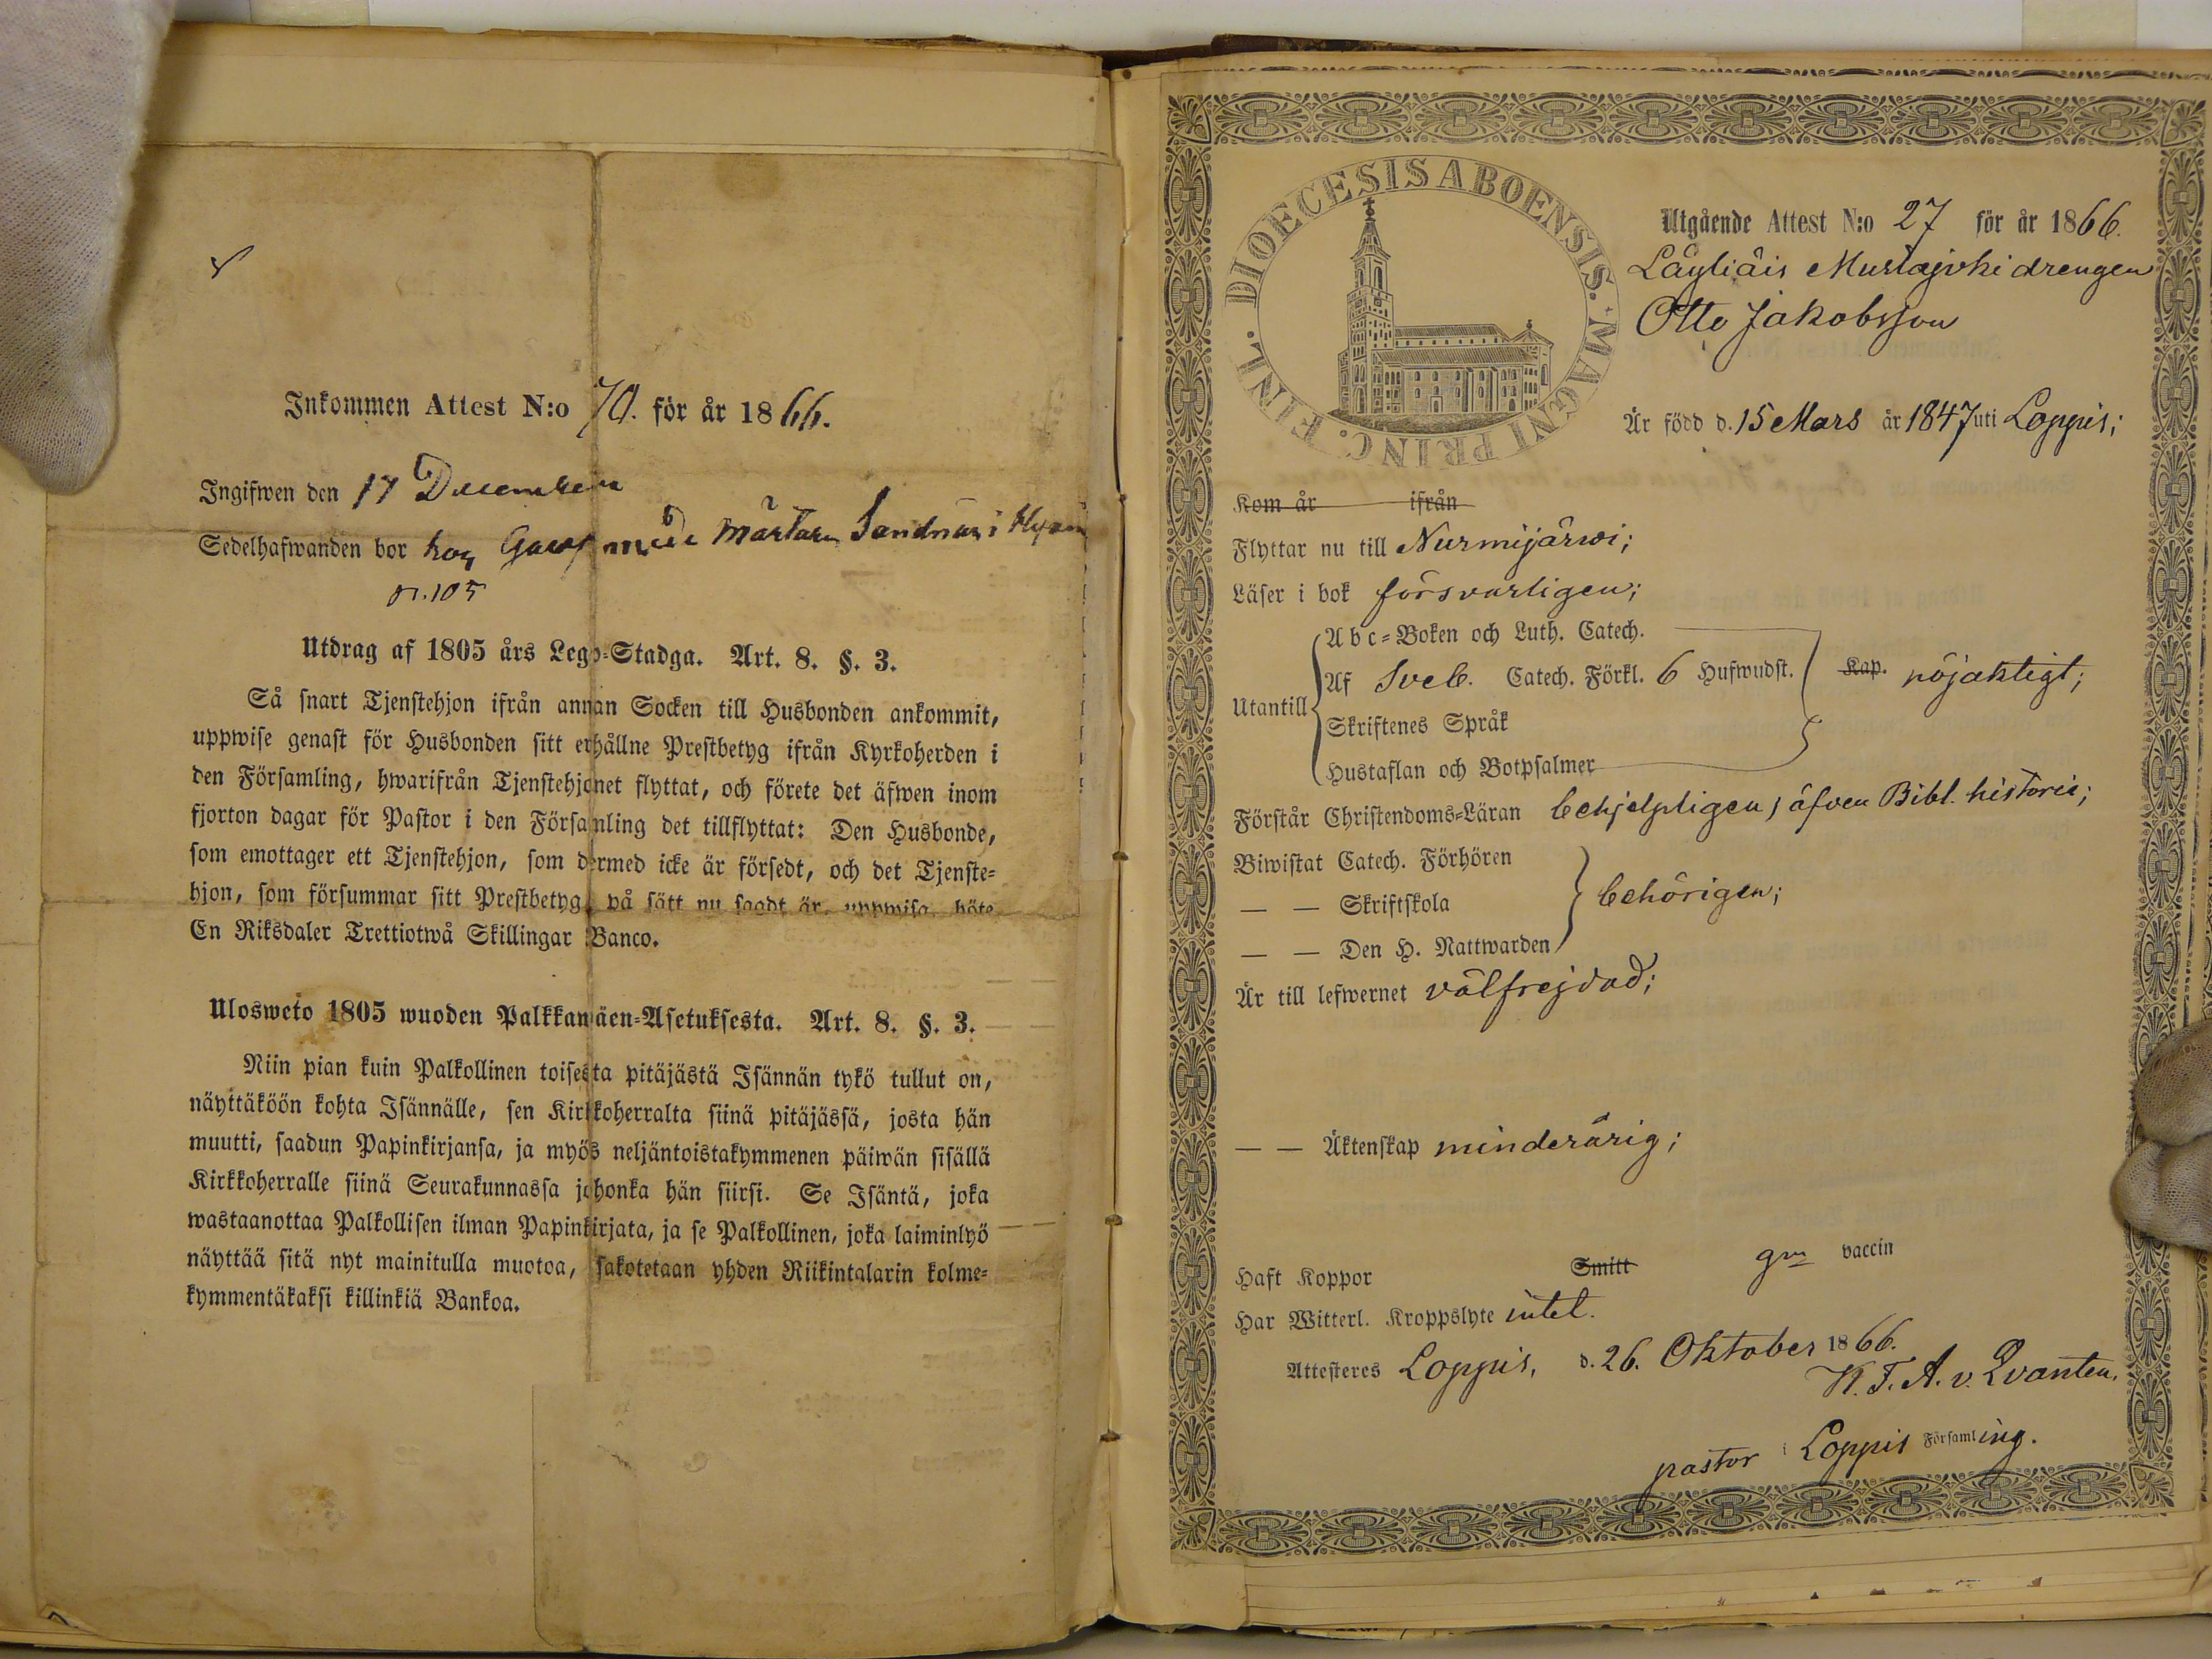 Inkommen Attest N:o 70. för år 1866.
Ingifwen den 17 December
Sedelhafwanden bor hos mårten Sandnäs i
n. 105
Utdrag af 1805 års Lego-Stadga. Art. 8. §. 3.
Så snart Tjenstehjon ifrån annan Socken till Husbonden ankommit,
uppwise genast för Husbonden sitt erhållne Prestbetyg ifrån Kyrkoherden i
den Församling, hwarifrån Tjenstehjonet flyttat, och förete det äfwen inom
fjorton dagar för Pastor i den Församling det tillflyttat: Den Husbonde,
som emottager ett Tjenstehjon, som dermed icke är försedt, och det Tjenste-
hjon, som försummar sitt Prestbetyg, på sätt nu sagdt är, uppwisa, böte
En Riksdaler Trettiotwå Skillingar Banco.
Ulosweto 1805 wuoden Palkkawäen-Asetuksesta. Art. 8. §. 3.
Niin pian kuin Palkollinen toisesta pitäjästä Isännän tykö tullut on,
näyttäköön kohta Isännälle, sen Kirkkoherralta siinä pitäjässä, josta hän
muutti, saadun Papinkirjansa, ja myös neljäntoistakymmenen päiwän sisällä
Kirkkoherralle siinä Seurakunnassa johonka hän siirsi. Se Isäntä, joka
wastaanottaa Palkollisen ilman Papinkirjata, ja se Palkollinen, joka laiminlyö
näyttää sitä nyt mainitulla muotoa, sakotetaan yhden Riikintalarin kolme-
kymmentäkaksi killinkiä Bankoa.
DIOECESIS ABOENSIS. MAGNI PRINC. FINL.
Utgående Attest N:o 27 för år 1866.
Läyliäis Mustajoki drengen
Otto Jakobsson
Är född d. 15 Mars år 1847 uti Loppis;
Kom år ifrån
Flyttar nu till Nurmijärwi;
Läser i bok försvarligen;
Utantill
Abc-Boken och Luth. Catech.
Af Sveb. Catech. Förkl. 6 Hufwudst. Kap. nöjaktigt;
Skriftenes Språk
Hustaflan och Botpsalmer
Förstår Christendoms-Läran behjelpligen, äfven Bibl. historie;
Biwistat Catech. Förhören
— — Skriftskola behörigen;
— — Den H. Nattwarden
Är till lefwernet välfrejdad;
— — Äktenskap minderårig;
Haft Koppor Smitt gm vaccin
Har Witterl. Kroppslyte intet.
Attesteres Loppis, d. 26. Oktober 1866.
K. F. A. v. Qvanten.
pastor i Loppis Församling.